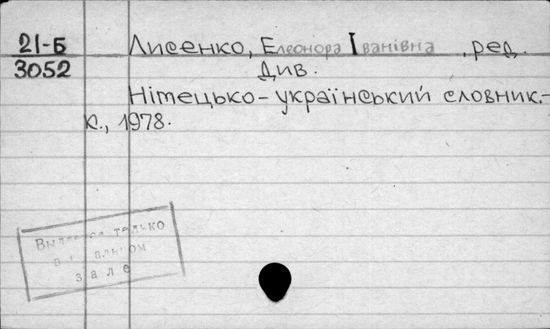 21-Б
3052
Лисенко, Елеонора Іванівна, ред.
Див.
Німецько-український словник.-
К., 1978.
только
зале